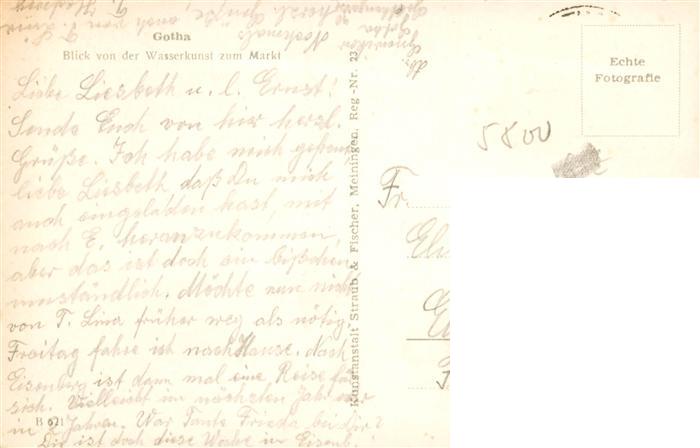 Gotha
Blick von der Wasserkunst zum Markt
Liebe Liesbeth u. l. Ernst!
Sende Euch von hier herzl.
Grüße. Ich habe mich gefreut,
liebe Liesbeth, daß Du mich
auch eingeladen hast, mit
nach E. heranzukommen,
aber das ist doch ein bißchen
umständlich. Möchte nun nicht
von T. Lina früher weg als nötig.
Freitag fahre ich nach Hause. Nach
Eisenberg ist dann mal eine Reise für
sich. Vielleicht im nächsten Jahr oder
in 2 Jahren. War Tante Frieda bei Dir?
Die ist doch diese Woche in Eisenb.
B 621
Kunstanstalt Straub & Fischer, Meiningen, Reg.-Nr. 23
Echte
Fotografie
5800
Fr.